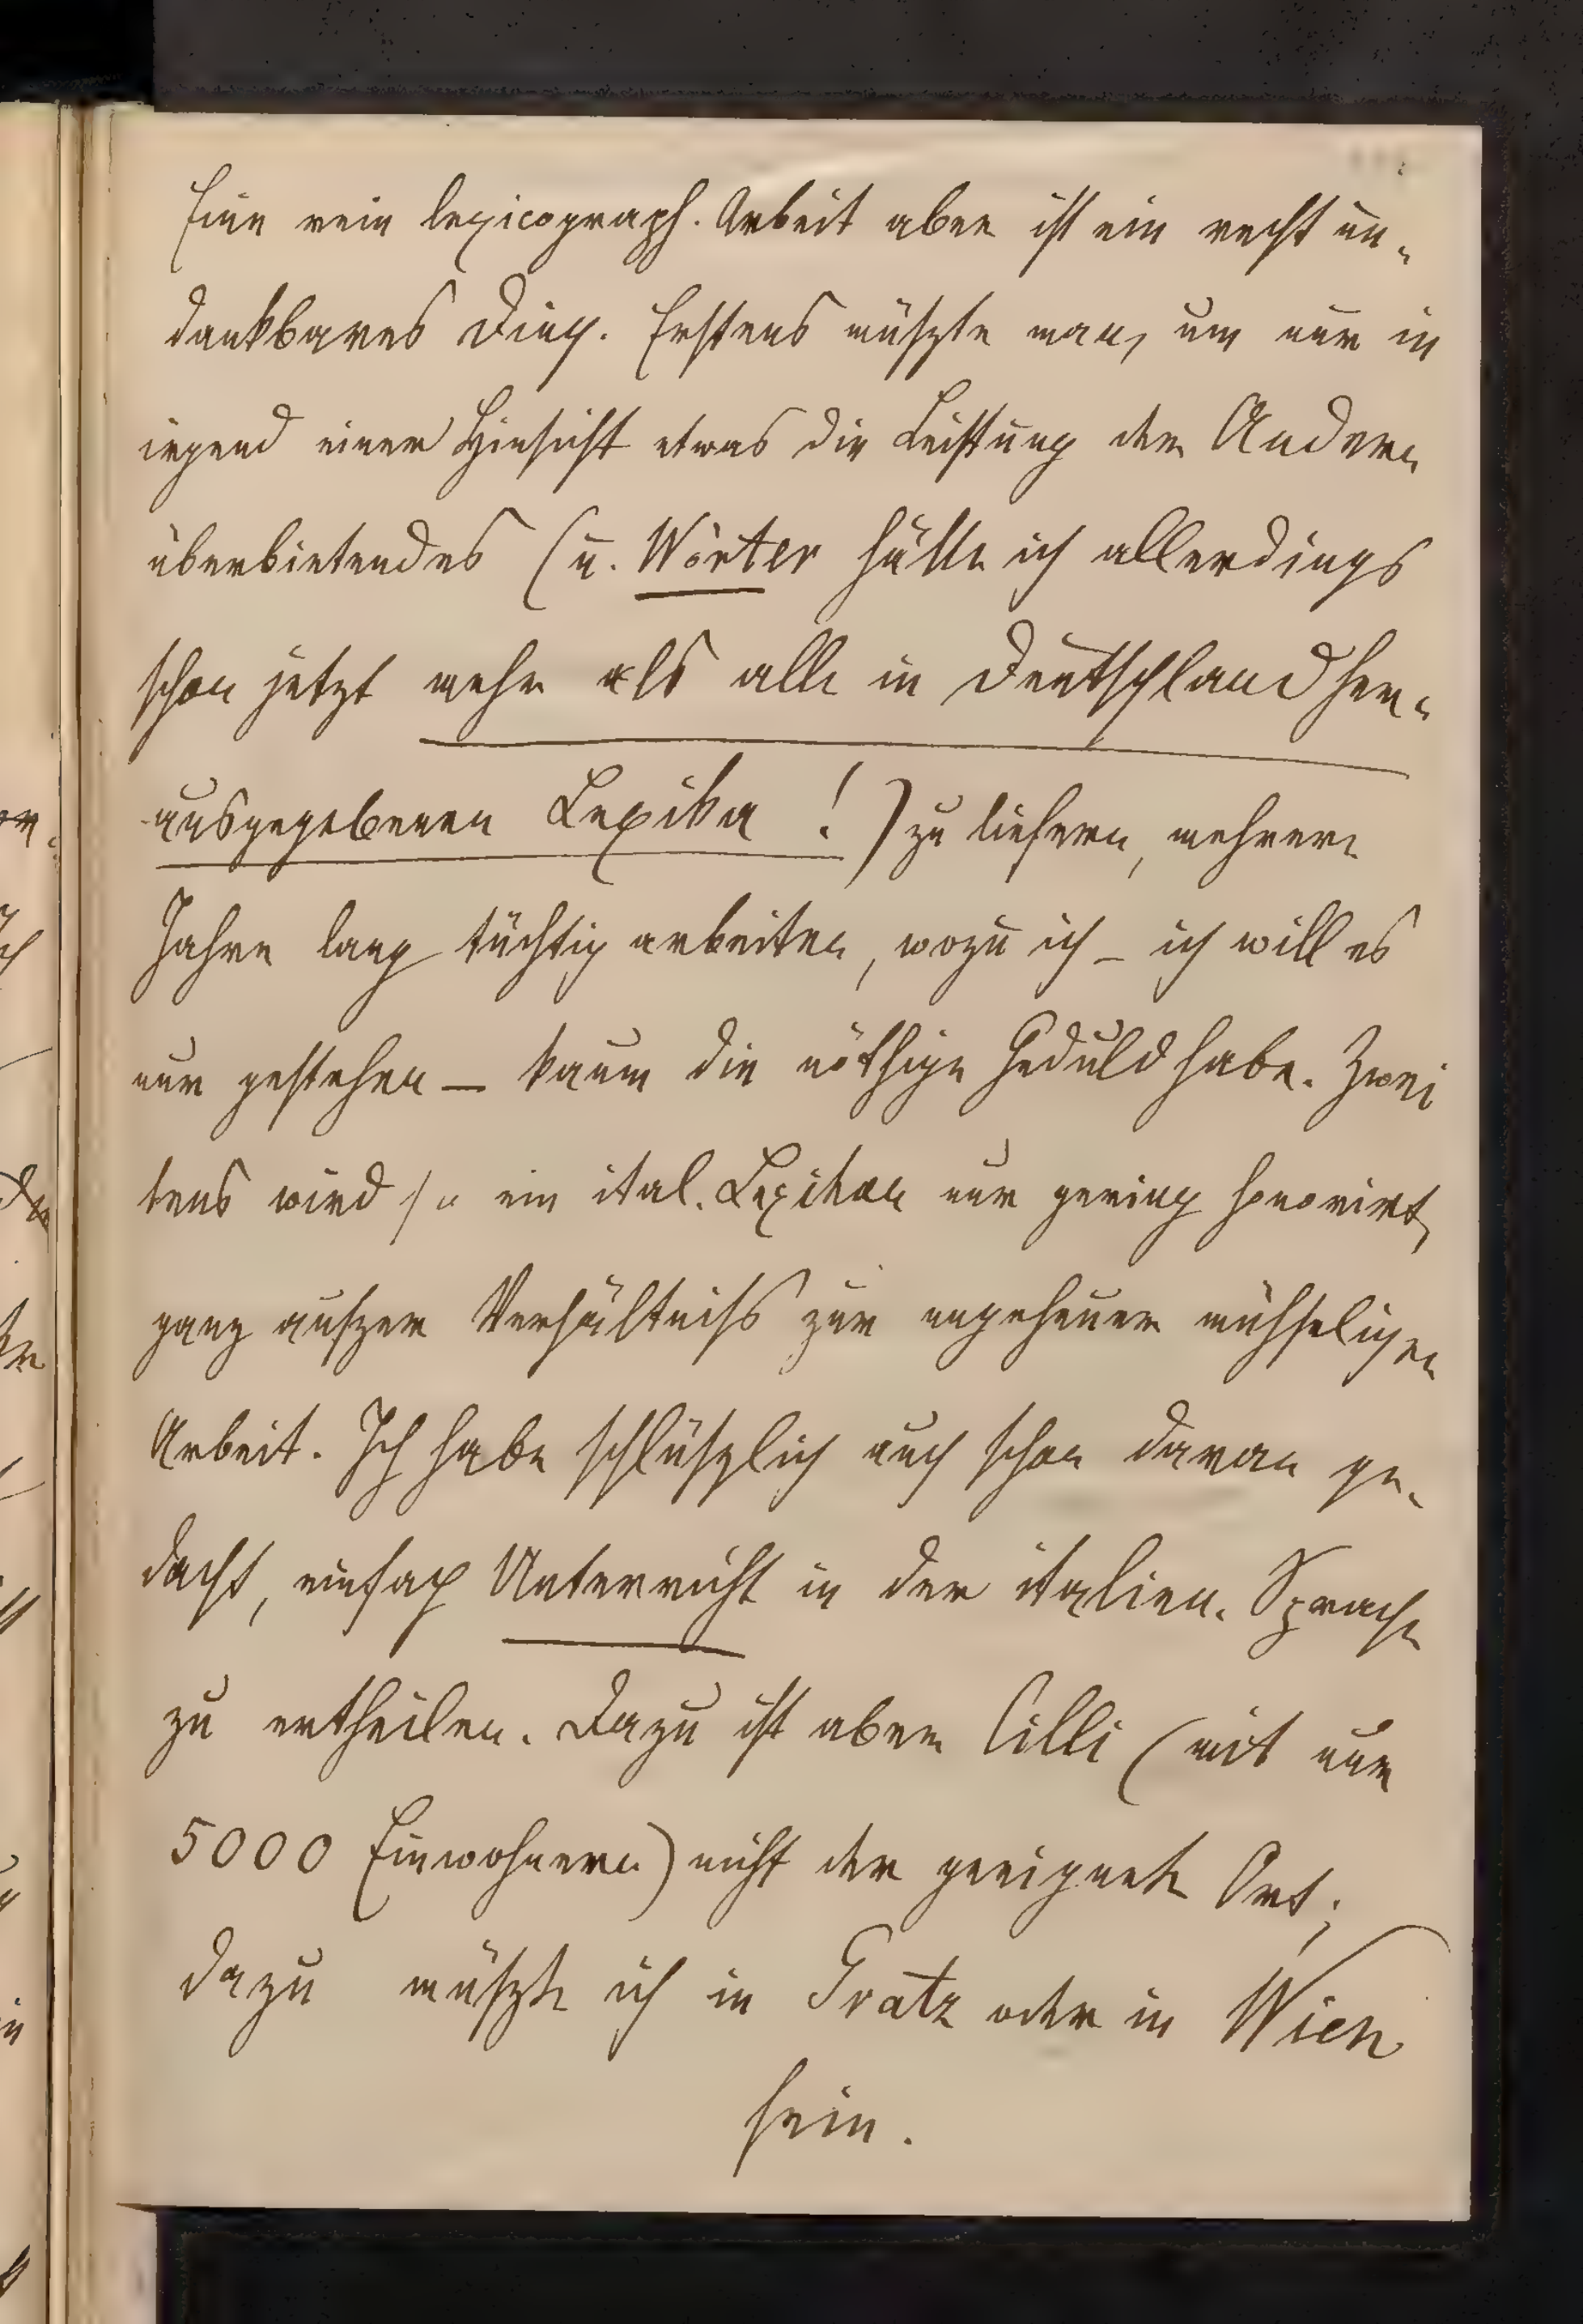 Eine rein lexicograph. Arbeit aber ist ein recht un-
dankbares Ding. Erstens müszte man, um nur in
irgend einer Hinsicht etwas die Leistung der Andern
überbietendes (u. Wörter hätte ich allerdings
schon jetzt mehr als alle in Deutschland her-
ausgegebenen Lexika!) zu liefern, mehrere
Jahre lang tüchtig arbeiten, wozu ich – ich will es
nur gestehen – kaum die nöthige Geduld habe. Zwei
tens wird ja ein ital. Lexikon nur gering honorirt,
ganz auszer Verhältniss zur ungeheuer mühseligen
Arbeit. Ich habe schlüszlich auch schon daran ge-
dacht, einfach Unterricht in der italien. Sprache
zu ertheilen. Dazu ist aber Cilli (mit nur
5000 Einwohnern) nicht der geeignete Ort;
dazu müszte ich in Gratz oder in Wien
sein.